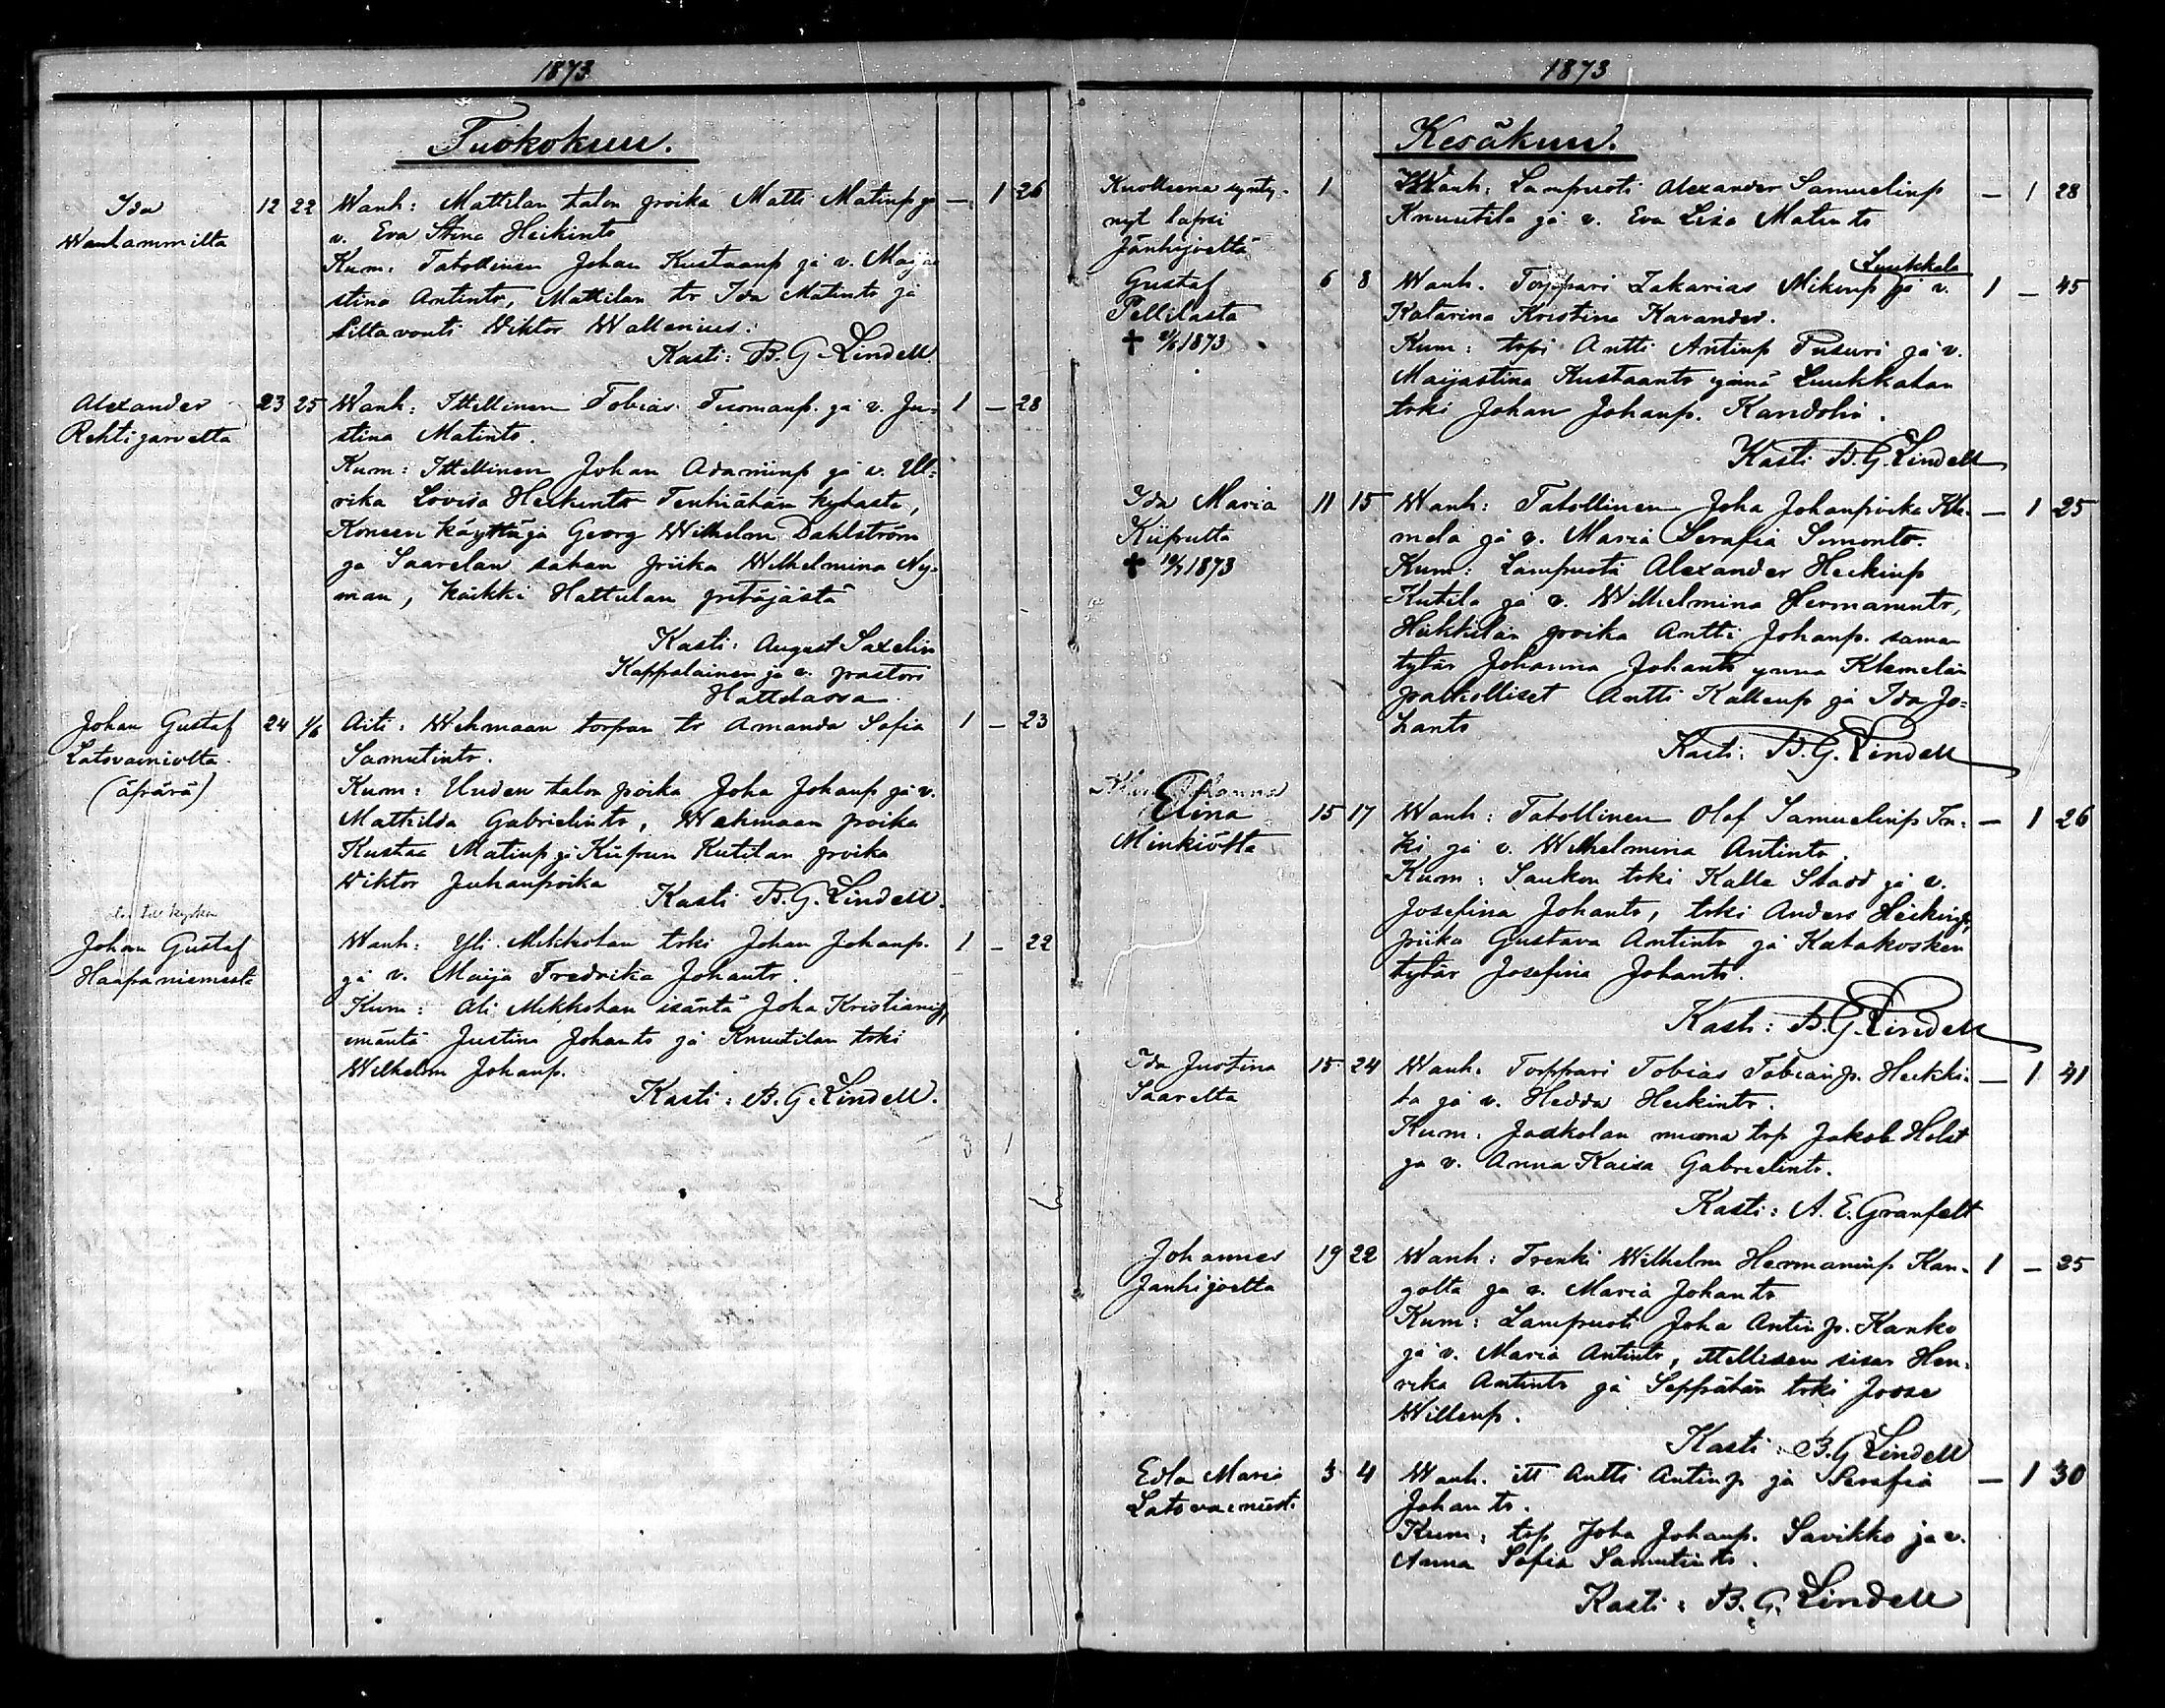 1873
Tuokokuu.
Ida 12 22 Wanh: Mattilan talon poika Matti Matinp ja — 1 26
Wanhammilta v. Eva Stina Heikintr
Kum: Talollinen Johan Kustaanp ja v. Maija
stina Antintr, Mattilan tr Ida Matintr ja
Siltavouti Wiktor Wallenius.
Kasti: B. G. Lindell
Alexander 23 25 Wanh: Ittellinen Tobias Tuomanp. ja v. Ju= 1 — 28
Rehtijärveltä stina Matintr.
Kum: Ittellinen Johan Adaminp ja v. Ul=
rika Lovisa Heikintr Tenhiälän kylästä,
Koneen käyttäjä Georg Wilhelm Dahlström
ja Saarelan sahan piika Wilhelmina Ny=
man, kaikki Hattulan pitäjästä
Kasti: August Saxelin
Kappalainen ja v. pastori
Hattulassa.
Johan Gustaf 24 1/6 Äiti: Wehmaan torpan tr Amanda Sofia 1 — 23
Latovainiolta Samulintr.
(äpärä) Kum: Uuden talon poika Joha Johanp ja v.
Mathilda Gabrielintr, Wehmaan poika
Kustaa Matinp ja Kiipun Kutilan poika
Wiktor Juhanpoika Kasti B. G. Lindell.
Johan Gustaf Wanh: Yli Mikkolan trki Johan Johanp. 1 — 22
Haapaniemestä ja v. Maija Fredrika Johantr.
Kum: Ali Mikkolan isäntä Joha Kristianip,
emäntä Justina Johantr ja Knuutilan trki
Wilhelm Johanp.
Kasti: B. G. Lindell.
3 1
1873
Kesäkuu.
Kuolleena synty- 1 Wanh: Lampuoti Alexander Samuelinp — 1 28
nyt lapsi Knuutila ja v. Eva Lisa Matintr
Jänhijoelta
Luukkala
Gustaf 6 8 Wanh. Torppari Zakarias Mikinp ja v. 1 — 45
Pellilästä Katarina Kristina Kavander.
† 1873 Kum: trpi Antti Antinp Pusuri ja v.
Maijastina Kustaantr ynnä Luukkalan
trki Johan Johanp. Kandolin.
Kasti B. G. Lindell
Ida Maria 11 15 Wanh: Talollinen Joha Johanpoika Kle- — 1 25
Kiipulta melä ja v. Maria Serafia Simontr.
† 1873 Kum: Lampuoti Alexander Heikinp
Kutila ja v. Wilhelmina Hermanintr,
Heikkilän poika Antti Johanp. sama
tytär Johanna Johantr ynnä Klemelän
palkolliset Antti Kallenp ja Ida Jo=
hantr
Kasti: B. G. Lindell
Elina 15 17 Wanh: Talollinen Olof Samuelinp In- — 1 26
Minkiöltä ki ja v. Wilhelmina Antintr.
Kum: Saukon trki Kalle Stadd ja v.
Josefina Johantr, trki Anders Heikinp,
piika Gustava Antintr ja Katakosken
tytär Josefina Johantr.
Kasti: B. G. Lindell
Ida Justina 15 24 Wanh. Torppari Tobias Tobianp. Heikki- — 1 41
Saarelta lä ja v. Hedda Heikintr.
Kum: Jaakolan muona trp Jakob Holst
ja v. Anna Kaisa Gabrielintr.
Kasti: A. E. Granfelt
Johannes 19 22 Wanh: Trenki Wilhelm Hermaninp Kan- 1 — 25
Janhijoelta golta ja v. Maria Johantr
Kum: Lampuoti Joha Antinp. Kanko
ja v. Maria Antintr, ittellisen sisar Hen-
rika Antintr ja Seppälän trki Joose
Willenp.
Kasti: B. G. Lindell
Edla Maria 3 4 Wanh. itt Antti Antinp ja Serafia — 1 30
Latovainiost. Johantr.
Kum: trp Joha Johanp. Savikko ja v.
Anna Sofia Samulintr.
Kasti: B. G. Lindell